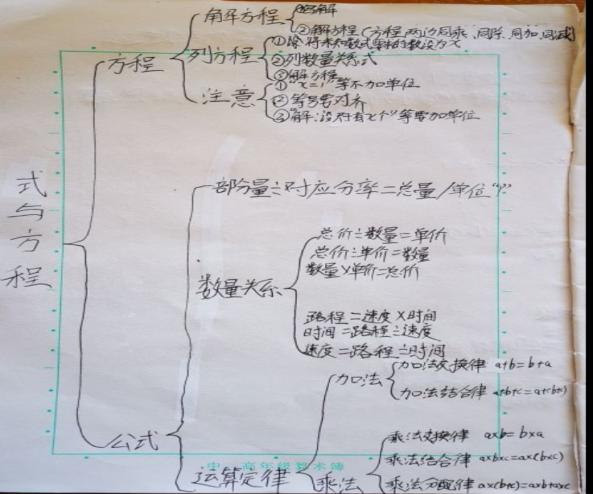 式与方程
方程
解方程
②解方程(方程两边同乘、同除、同加、同减)
列方程
②列数量关系式
③解方程
注意
①"x=1"等不加单位
②等号要对齐
公式
部分量÷对应分率=总量/单位"1"
数量关系
总价÷数量=单价
总价÷单价=数量
数量×单价=总价
路程=速度×时间
时间=路程÷速度
速度=路程÷时间
运算定律
加法
加法交换律 a+b=b+a
加法结合律 a+b+c=a+(b+c)
乘法
乘法交换律 a×b=b×a
乘法结合律 a×b×c=a×(b×c)
乘法分配律 a×(b+c)=a×b+a×c